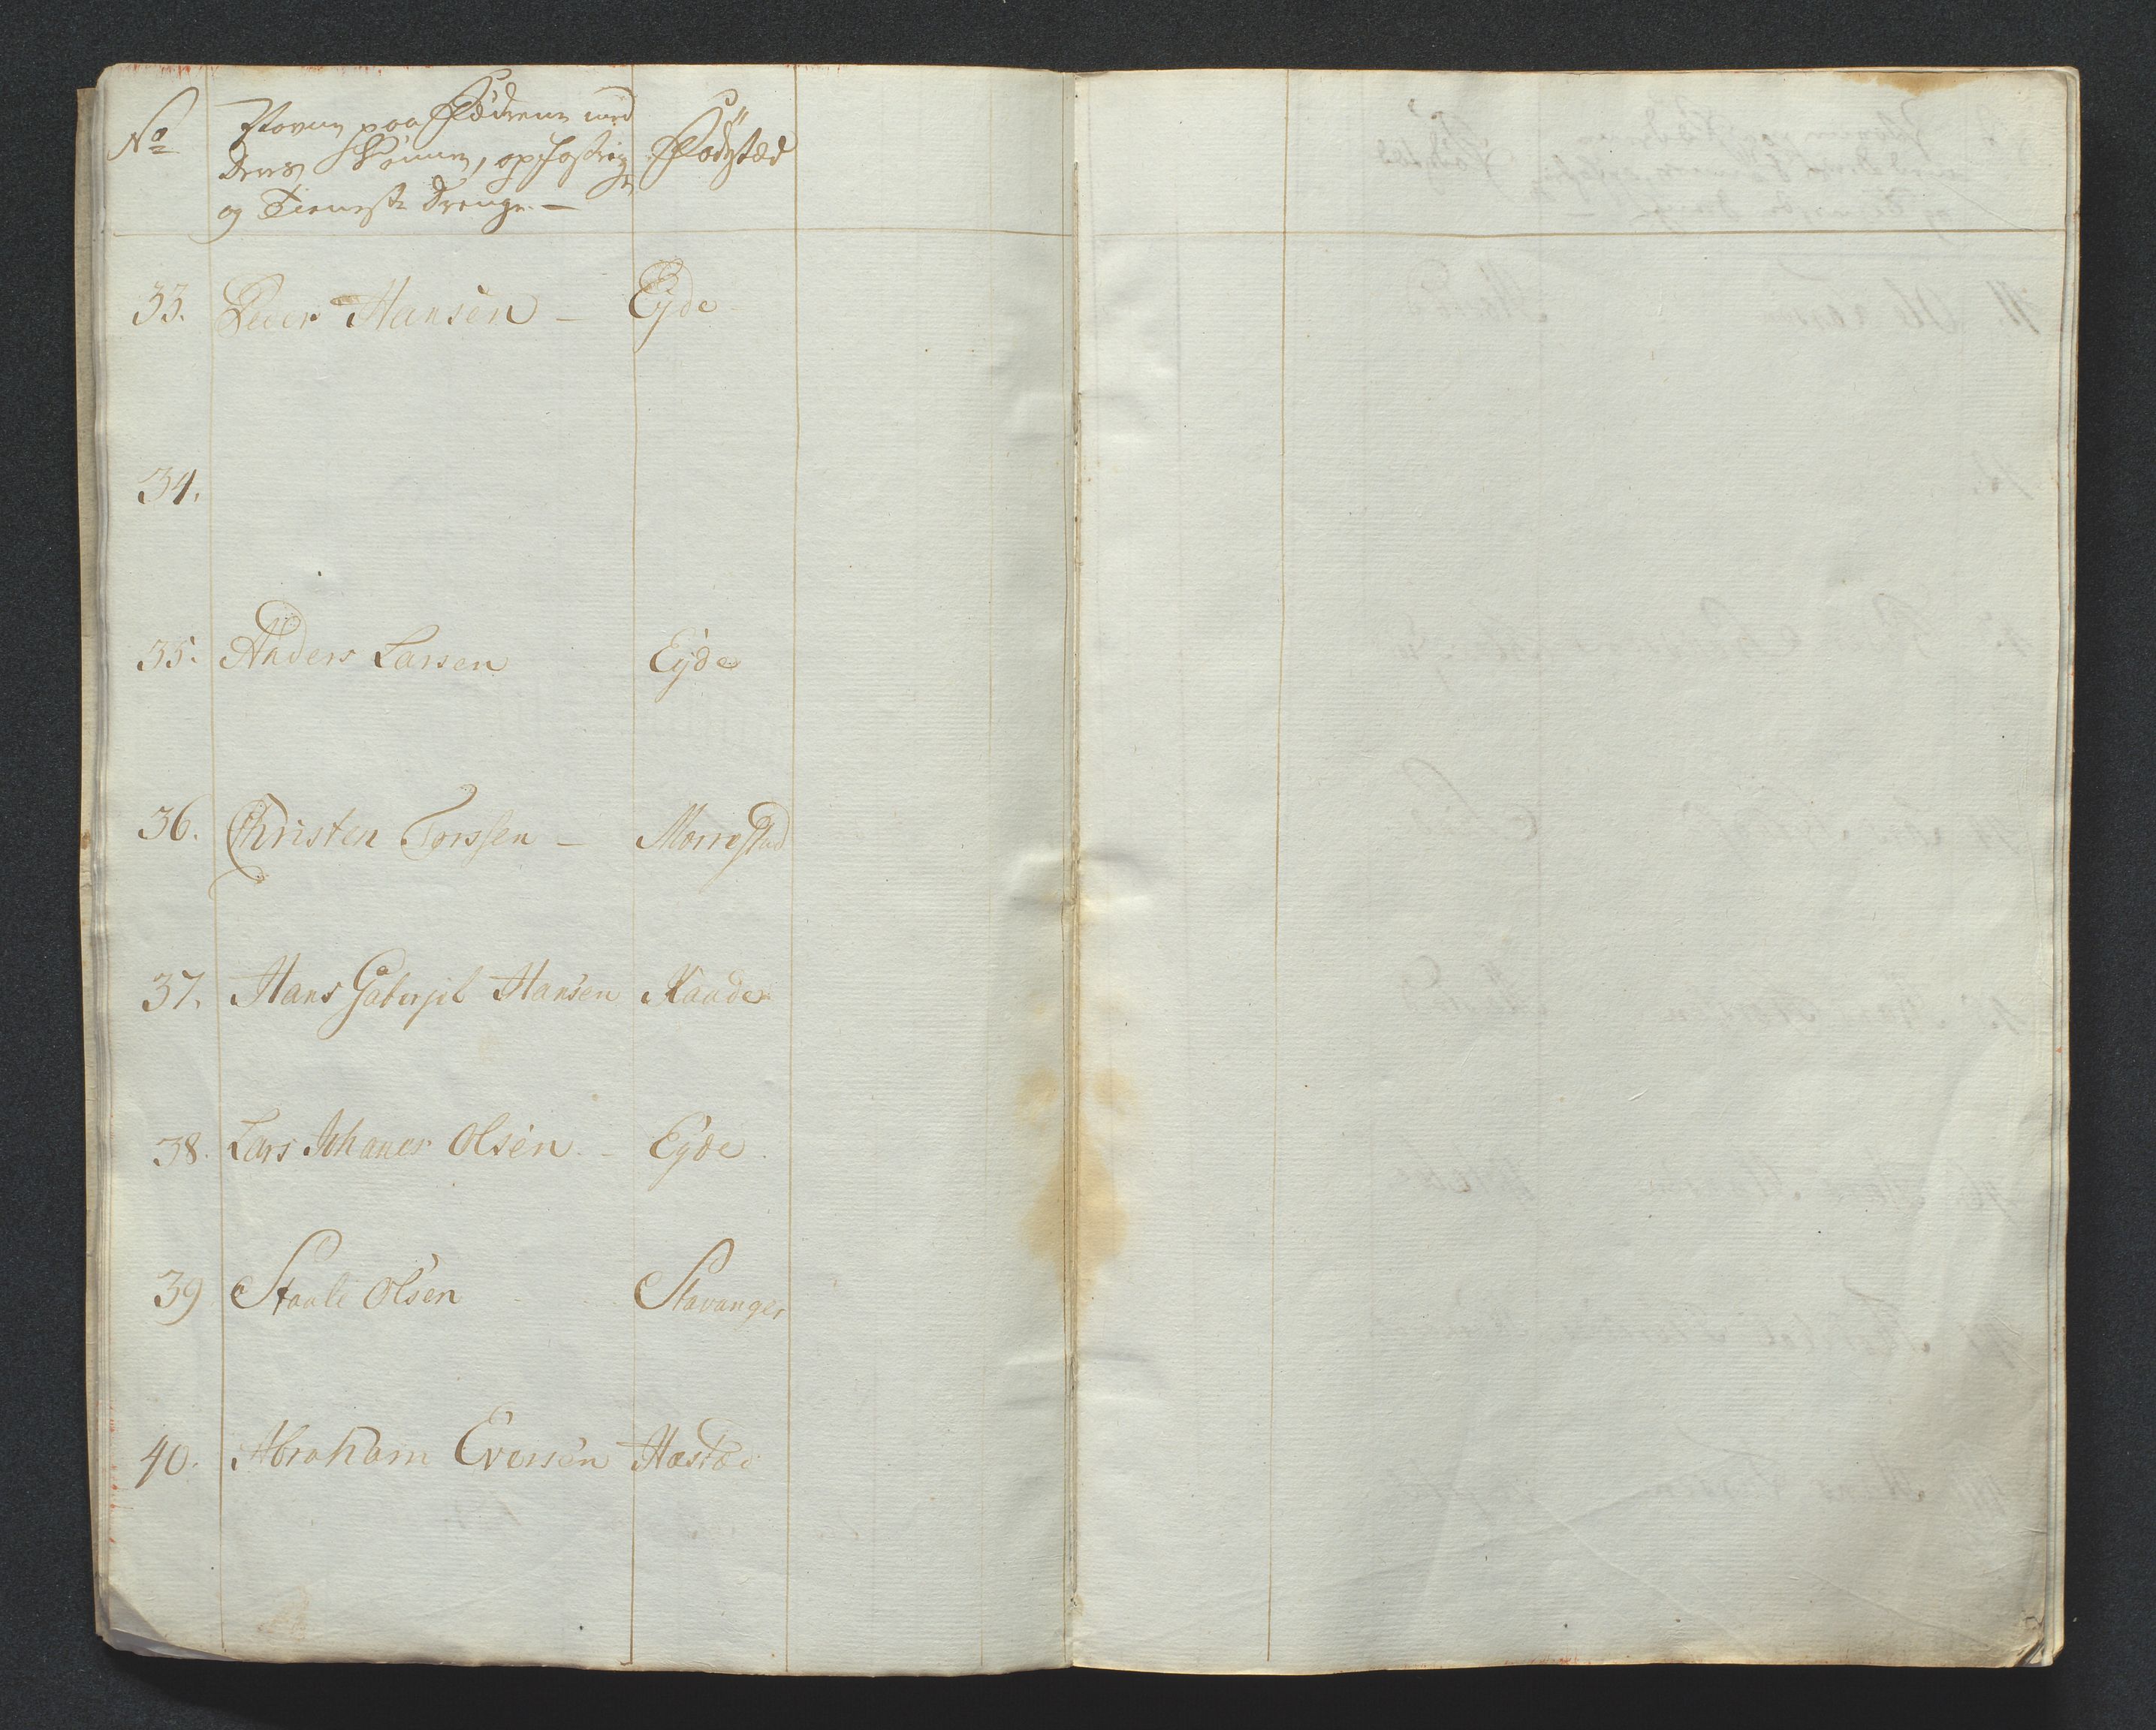 No
Navne paa Fædrene med
deres Sønner, opfostrings
og Tieneste Drenge. —
Fødestæd
33. Peder Hansen — Eyde
34.
35. Anders Larsen Eyde
36. Christen Torssen — Morrestad
37. Hans Gaberjel Hansen Kaade
38. Lars Johanes Olsen. — Eyde
39 Staale Olsen Stavanger
40. Abraham Eversen Hæstæd